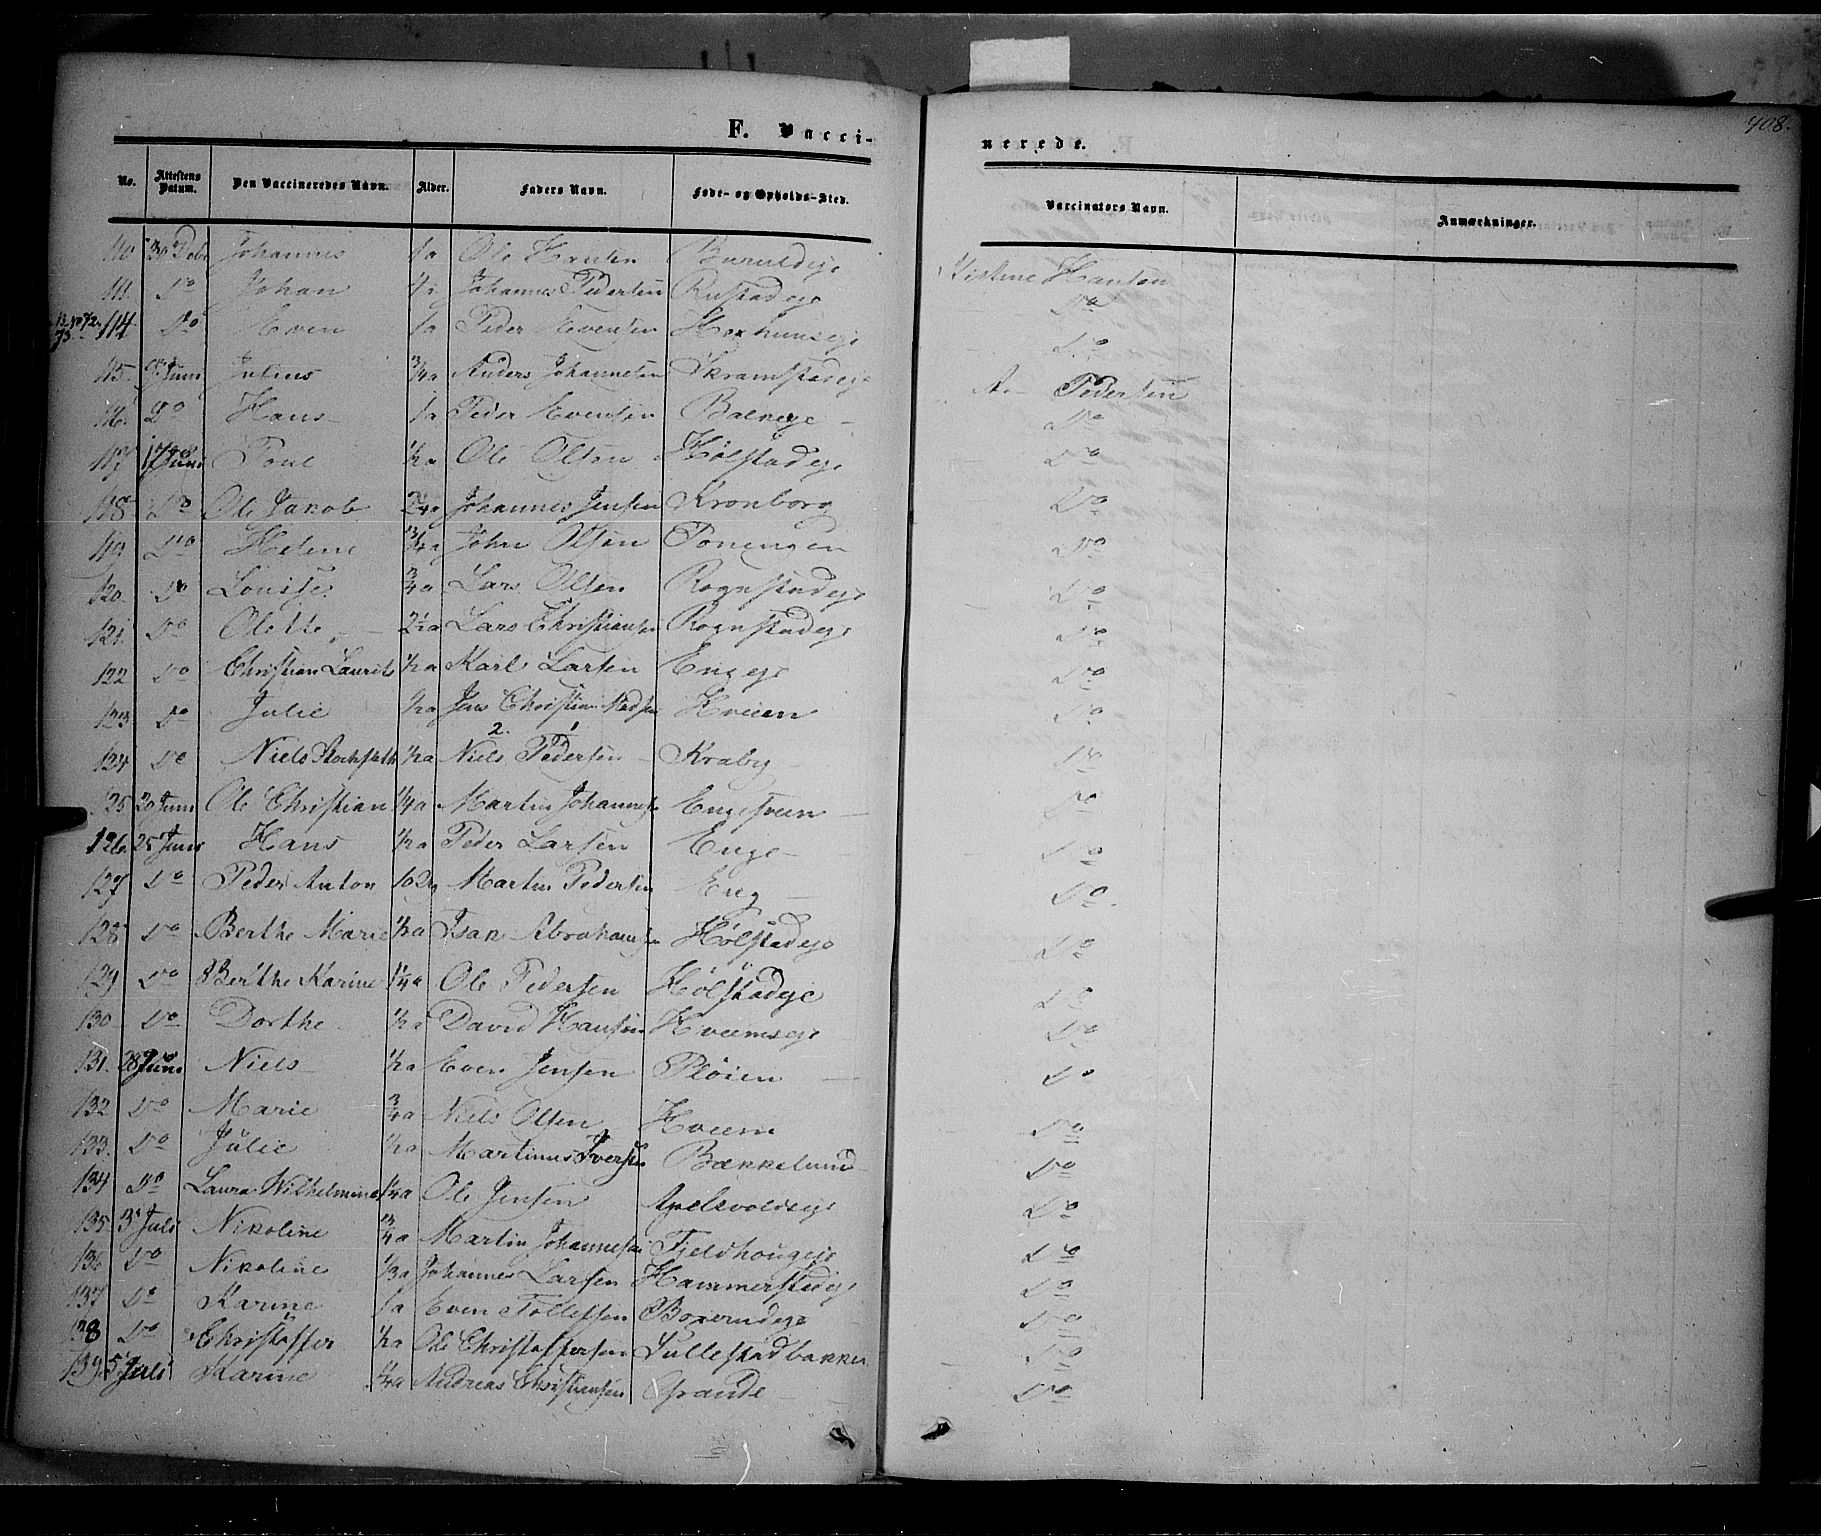 F. Vacci-
nerede.
408.
No. Attestens Datum. Den Vaccineredes Navn. Alder. Faders Navn. Føde- og Opholds-Sted. Vaccinators Navn. Anmærkninger.
110 30 Johannes 1a Ole Hansen Hansen
111. Do Johan Johannes Pedersen Rustadeje Do
114 Do Even 1a Peder Evensen Do
115. Juni Julius 3/4a Anders Johannesen Skramstadeje A. Pedersen
116. Do Hans 1a Peder Evensen Balkeje Do
117 17 Juni Poul 1/2a Ole Olsen Hølstadeje Do
118 Do Ole Jakob 2 1/4a Johannes Jensen Kronborg Do
119 Do Helene 3/4a John Olsen Do
120. Do Louise 3/4a Lars Olsen Rognstadeje Do
121. Do Olette 2 1/2a Lars Christiansen Rognstadeje Do
122 Do Christian Laurits 1/2a Karl Larsen Engeje Do
123 Do Julie 1/2a Jens Christian Madsen Hveem Do
124 Do Niels 1/2a Niels Pedersen Kraby Do
125 20 Juni Ole Christian 1/4a Martin Johannesen Engesveen Do
126. 25 Juni Hans 1/2a Peder Larsen Enge Do
127 Do Peder Anton Martin Pedersen Eng Do
128 Do Berthe Marie 1/2a Isak Abrahamsen Hølstadeje Do
129 Do Berthe Karine 1/4a Ole Pedersen Hølstadeje Do
130 Do Dorthe 1/2a David Hansen Hveemseje Do
131. 28 Juni Niels 1/2a Even Jensen Pløien Do
132 Do Marie 3/4a Niels Olsen Hveem Do
133. Do Julie 1/2a Martinus Iversen Bækkelund Do
134 Do Laura Wilhelmine 1/4a Ole Jensen Apelsvoldseje Do
135 3 Juli Nikoline 3/4a Martin Johannesen Fjeldhougeje Do
136 Do Nikoline 1/3a Johannes Larsen Hammerstadeje Do
137 Do Karine 1a Even Tollefsen Do
138 Do Christoffer 1/2a Ole Christoffersen Sullestadbakken Do
139 5 Juli Karine 1/4a Andreas Christiansen Grande Do